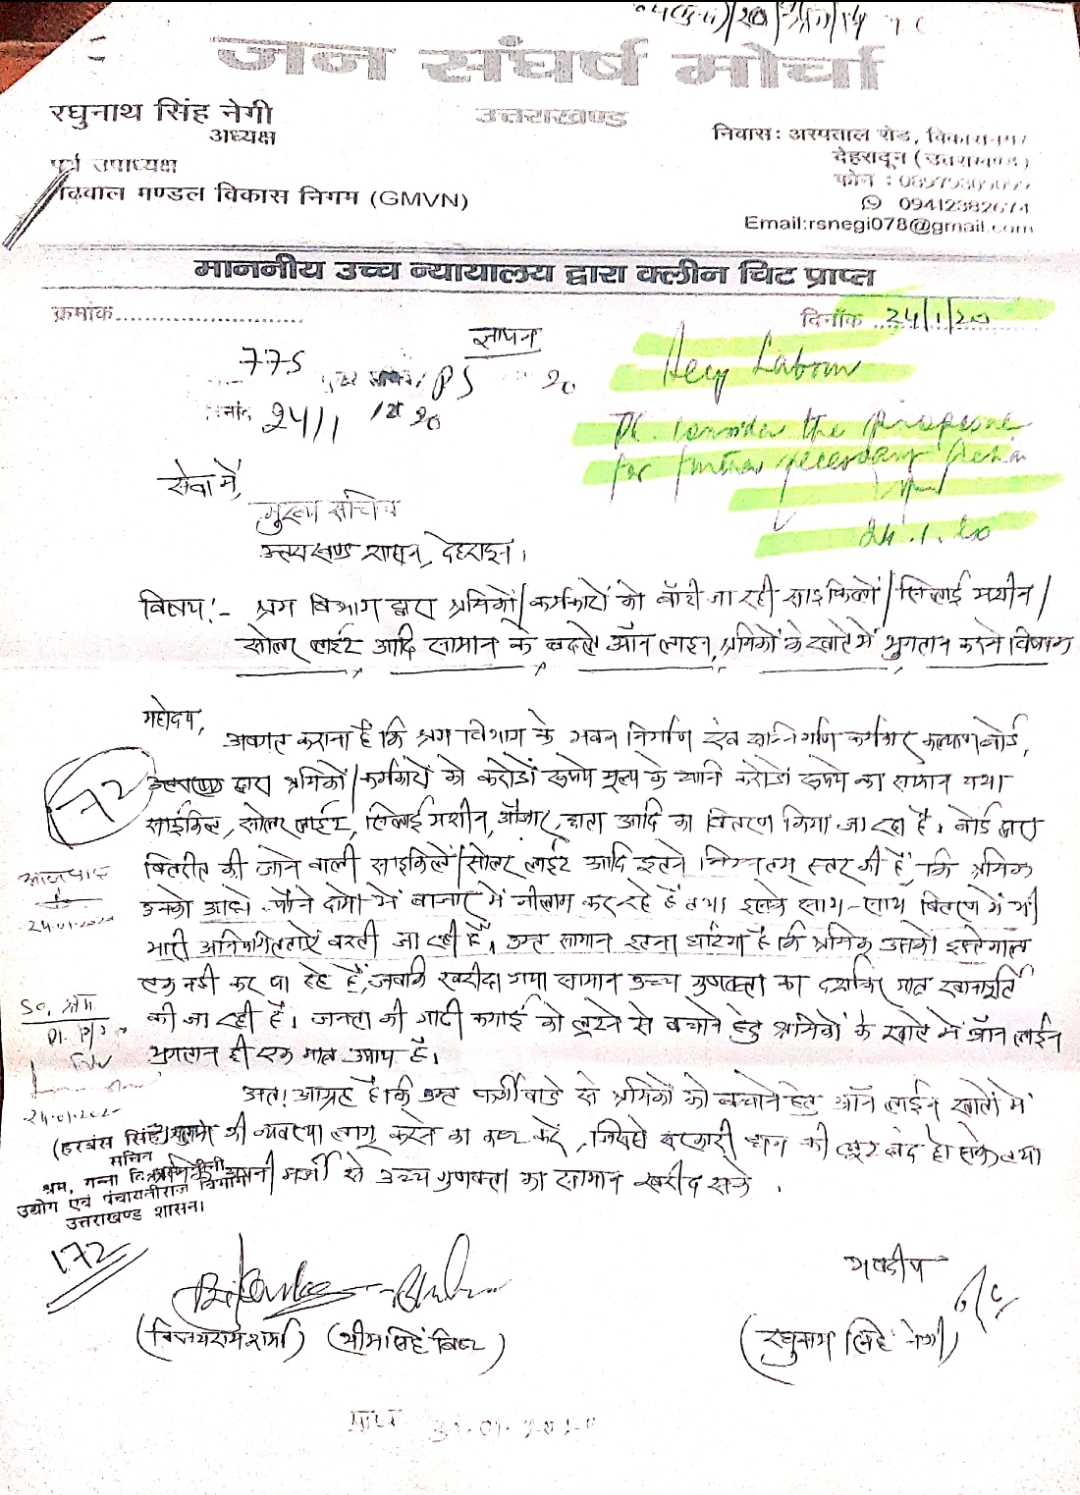 जन संघर्ष मोर्चा
उत्तराखण्ड
रघुनाथ सिंह नेगी
अध्यक्ष
पूर्व उपाध्यक्ष
गढ़वाल मण्डल विकास निगम (GMVN)
निवास: अस्पताल रोड, विकासनगर
देहरादून (उत्तराखण्ड)
फोन :
09412382674
Email:rsnegi078@gmail.com
माननीय उच्च न्यायालय द्वारा क्लीन चिट प्राप्त
क्रमांक............................
दिनाँक 24/1/20
ज्ञापन
775 PS 20
24/1 20
Secy Labour
Pl. consider the proposal
for further necessary action
24.1.20
सेवा में,
मुख्य सचिव
उत्तराखण्ड शासन, देहरादून।
विषय:- श्रम विभाग द्वारा श्रमिकों/कर्मकारों को बाँटी जा रही साइकिलों/सिलाई मशीन/
सोलर लाईट आदि सामान के बदले ऑन लाइन, श्रमिकों के खाते में भुगतान करने विषयक
महोदय,
अवगत कराना है कि श्रम विभाग के भवन निर्माण एंव सन्निर्माण कर्मकार कल्याण बोर्ड,
उत्तराखण्ड द्वारा श्रमिकों/कर्मकारों को करोडों रूपये मूल्य के यानि करोडों रूपये का सामान यथा
साईकिल, सोलर लाईट, सिलाई मशीन, औजार, छाता आदि का वितरण किया जा रहा है। बोर्ड द्वारा
वितरित की जाने वाली साइकिलें/सोलर लाईट आदि इतने निम्नतम् स्तर की हैं, कि श्रमिक
उनको औधे-पौने दामों में बाजार में नीलाम कर रहे हैं तथा इसके साथ-साथ वितरण में भी
भारी अनियमितताऐं बरती जा रही हैं। उक्त सामान इतना घटिया है कि श्रमिक उसको इस्तेमाल
तक नही कर पा रहे हैं, जबकि खरीदा गया सामान उच्च गुणवत्ता का दर्शाकर मात्र खानापूर्ति
की जा रही है। जनता की गाढी कमाई को लूटने से बचाने हेतु श्रमिकों के खाते में ऑन लाईन
भुगतान ही एक मात्र उपाय है।
अत: आग्रह है कि उक्त फर्जीवाडे से श्रमिकों को बचाने हेतु ऑन लाईन खातों में
भुगतान की व्यवस्था लागू करने का कष्ट करें, जिससे सरकारी धन की लूट बंद हो सके तथा
श्रमिक अपनी मर्जी से उच्च गुणवत्ता का सामान खरीद सके।
72
24-01-2020
SO, श्रम
24-01-2020
(हरबंस सिंह चुघ)
सचिव
श्रम, गन्ना विकास चीनी
उद्योग एवं पंचायतीराज विभाग
उत्तराखण्ड शासन।
172
भवदीय
(विजयराम शर्मा) (भीम सिंह बिष्ट)
(रघुनाथ सिंह नेगी)